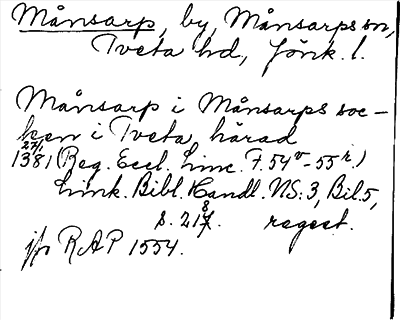 Månsarp, by, Månsarps sn,
Tveta hd, Jönk. l.
Månsarp i Månsarps soc-
ken i Tveta härad
27/1
1381 (Reg. Eccl. Linc. F. 54v-55r.)
Link. Bibl. Handl. NS:3, Bil. 5,
s. 218. regest.
jfr RAP 1554.